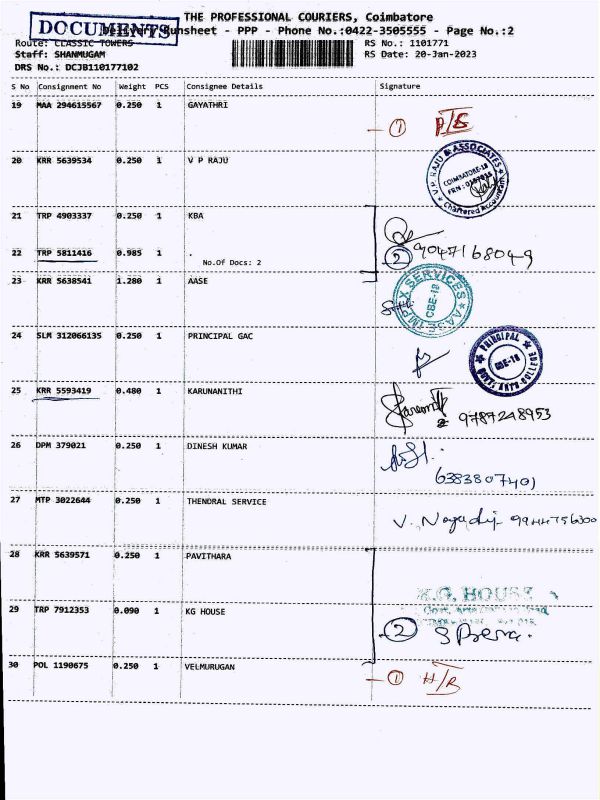 THE PROFESSIONAL COURIERS, Coimbatore
DOCUMENTS
Delivery Runsheet - PPP - Phone No.:0422-3505555 - Page No.:2
Route: CLASSIC TOWERS
RS No.: 1101771
Staff: SHANMUGAM
RS Date: 20-Jan-2023
DRS No.: DCJB110177102
S No Consignment No Weight PCS Consignee Details Signature
19 MAA 294615567 0.250 1 GAYATHRI
1
20 KRR 5639534 0.250 1 V P RAJU
V.P. RAJU & ASSOCIATES
COIMBATORE-18
Chartered Accountants
21 TRP 4903337 0.250 1 KBA
22 TRP 5811416 0.985 1 .
No.Of Docs: 2
2 9047168049
23 KRR 5638541 1.280 1 AASE
AASE IMPEX SERVICES
CBE-18
24 SLM 312066135 0.250 1 PRINCIPAL GAC
PRINCIPAL
CBE-18
GOVT. ARTS COLLEGE
25 KRR 5593419 0.480 1 KARUNANITHI
9787248953
26 DPM 379021 0.250 1 DINESH KUMAR
6383807401
27 MTP 3022644 0.250 1 THENDRAL SERVICE
V. 9944756300
28 KRR 5639571 0.250 1 PAVITHARA
K.G. HOUSE
29 TRP 7912353 0.090 1 KG HOUSE
2
30 POL 1190675 0.250 1 VELMURUGAN
1